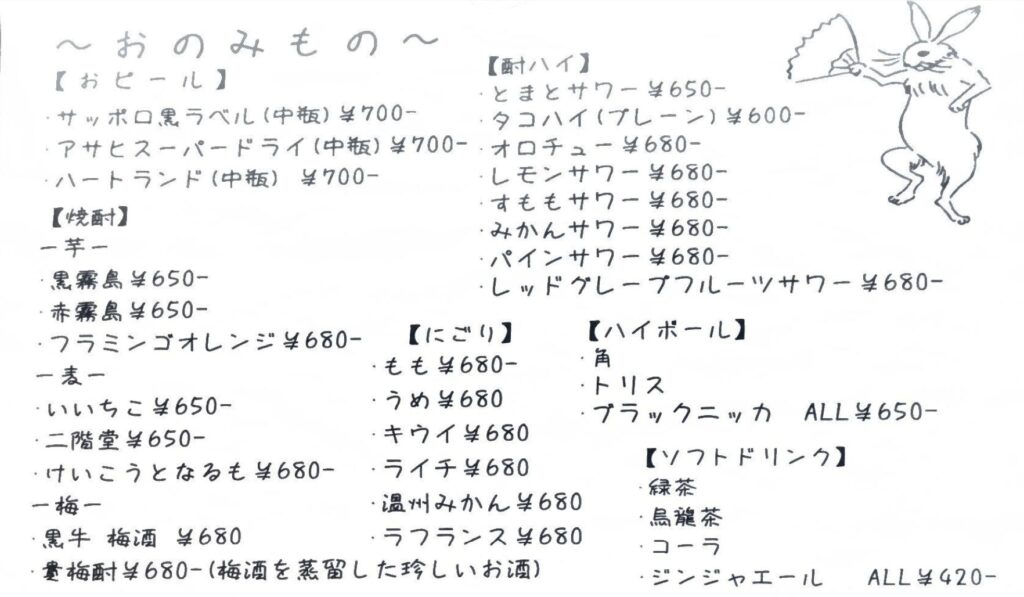 ～おのみもの～
【おビール】
・サッポロ黒ラベル(中瓶)¥700-
・アサヒスーパードライ(中瓶)¥700-
・ハートランド(中瓶) ¥700-
【焼酎】
ー芋ー
・黒霧島¥650-
・赤霧島¥650-
・フラミンゴオレンジ¥680-
ー麦ー
・いいちこ¥650-
・二階堂¥650-
・けいこうとなるも¥680-
ー梅ー
・黒牛 梅酒 ¥680
梅酎¥680-(梅酒を蒸留した珍しいお酒)
【酎ハイ】
・とまとサワー¥650-
・タコハイ(プレーン)¥600-
・オロチュー¥680-
・レモンサワー¥680-
・すももサワー¥680-
・みかんサワー¥680-
・パインサワー¥680-
・レッドグレープフルーツサワー¥680-
【にごり】
・もも¥680-
・うめ¥680
・キウイ¥680
・ライチ¥680
・温州みかん¥680
・ラフランス¥680
【ハイボール】
・角
・トリス
・ブラックニッカ ALL¥650-
【ソフトドリンク】
・緑茶
・烏龍茶
・コーラ
・ジンジャエール ALL¥420-